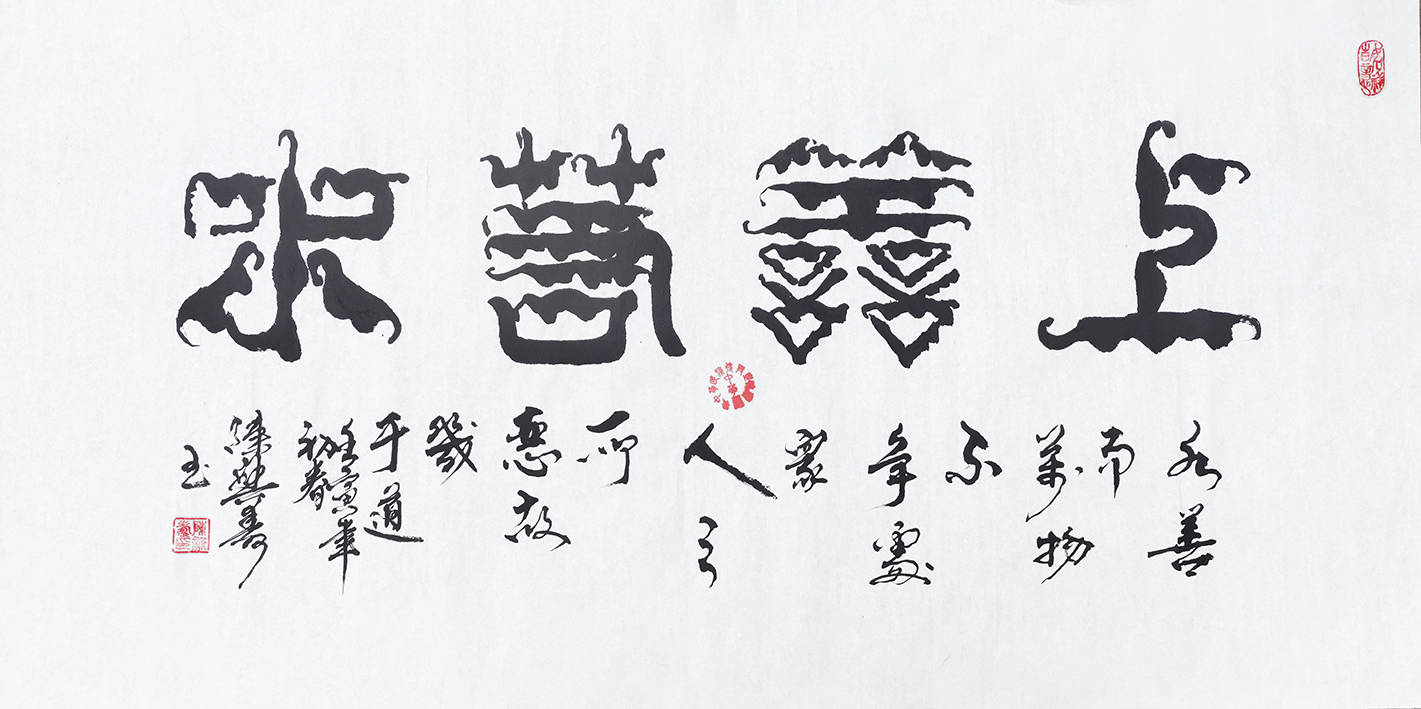 上善若水
水善
而
萬物
不
爭處
衆
人之
所
惡故
幾
于道
壬寅年
初春
陳興壽